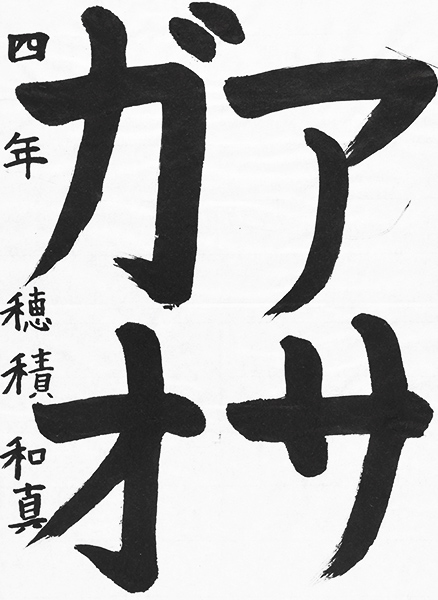 アサ
ガオ
四年 穂積 和真